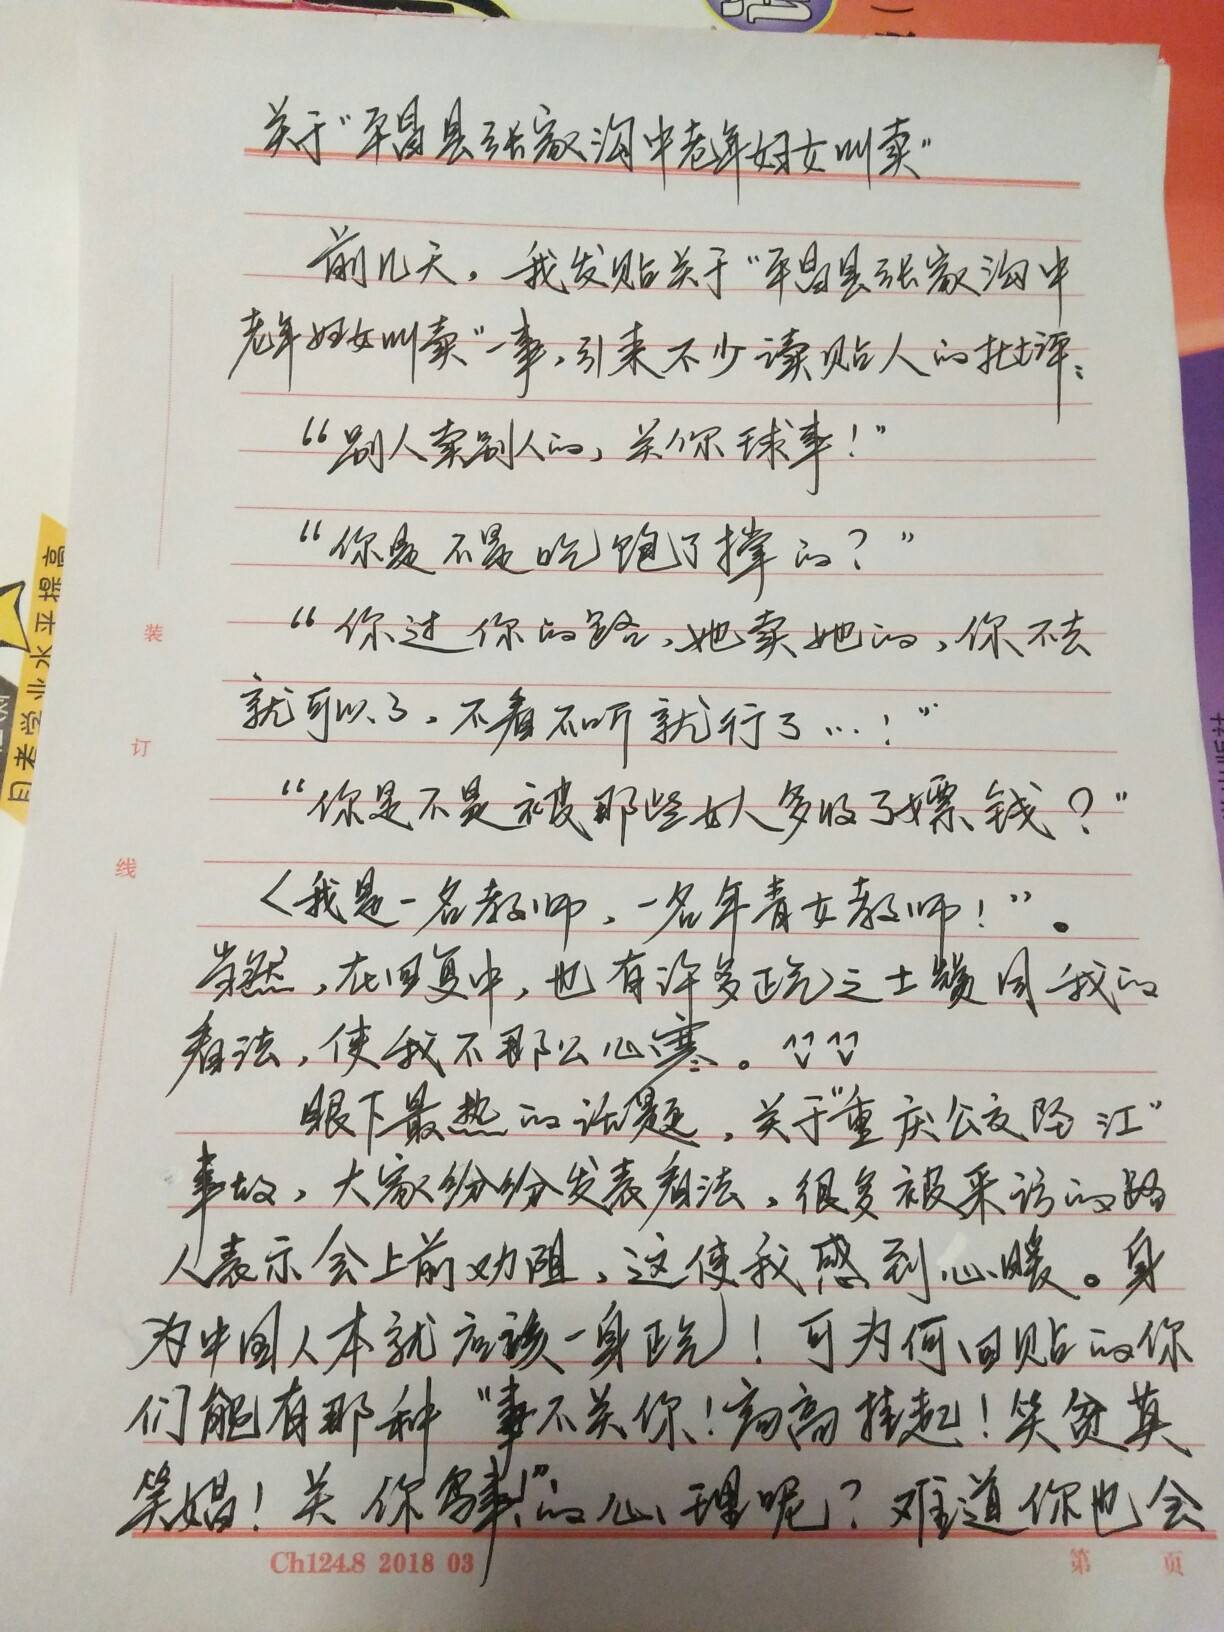 关于"平昌县张家沟中老年妇女叫卖"
前几天,我发贴关于"平昌县张家沟中
老年妇女叫卖"一事,引来不少读贴人的批评:
"别人卖别人的,关你球事!"
"你是不是吃饱了撑的?"
"你过你的路,她卖她的,你不去
就可以了,不看不听就行了…!"
"你是不是被那些女人多收了嫖钱?"
〈我是一名教师,一名年青女教师!"。
当然,在回复中,也有许多正气之士赞同我的
看法,使我不那么心寒。
眼下最热的话题,关于"重庆公交坠江"
事故,大家纷纷发表看法,很多被采访的路
人表示会上前劝阻,这使我感到心暖。身
为中国人本就应该一身正气!可为何回贴的你
们能有那种"事不关你!高高挂起!笑贫莫
笑娼!关你鸟事!"的心理呢?难道你也会
装
订
线
Ch124.8 2018 03
第 页
目考学业水平提高